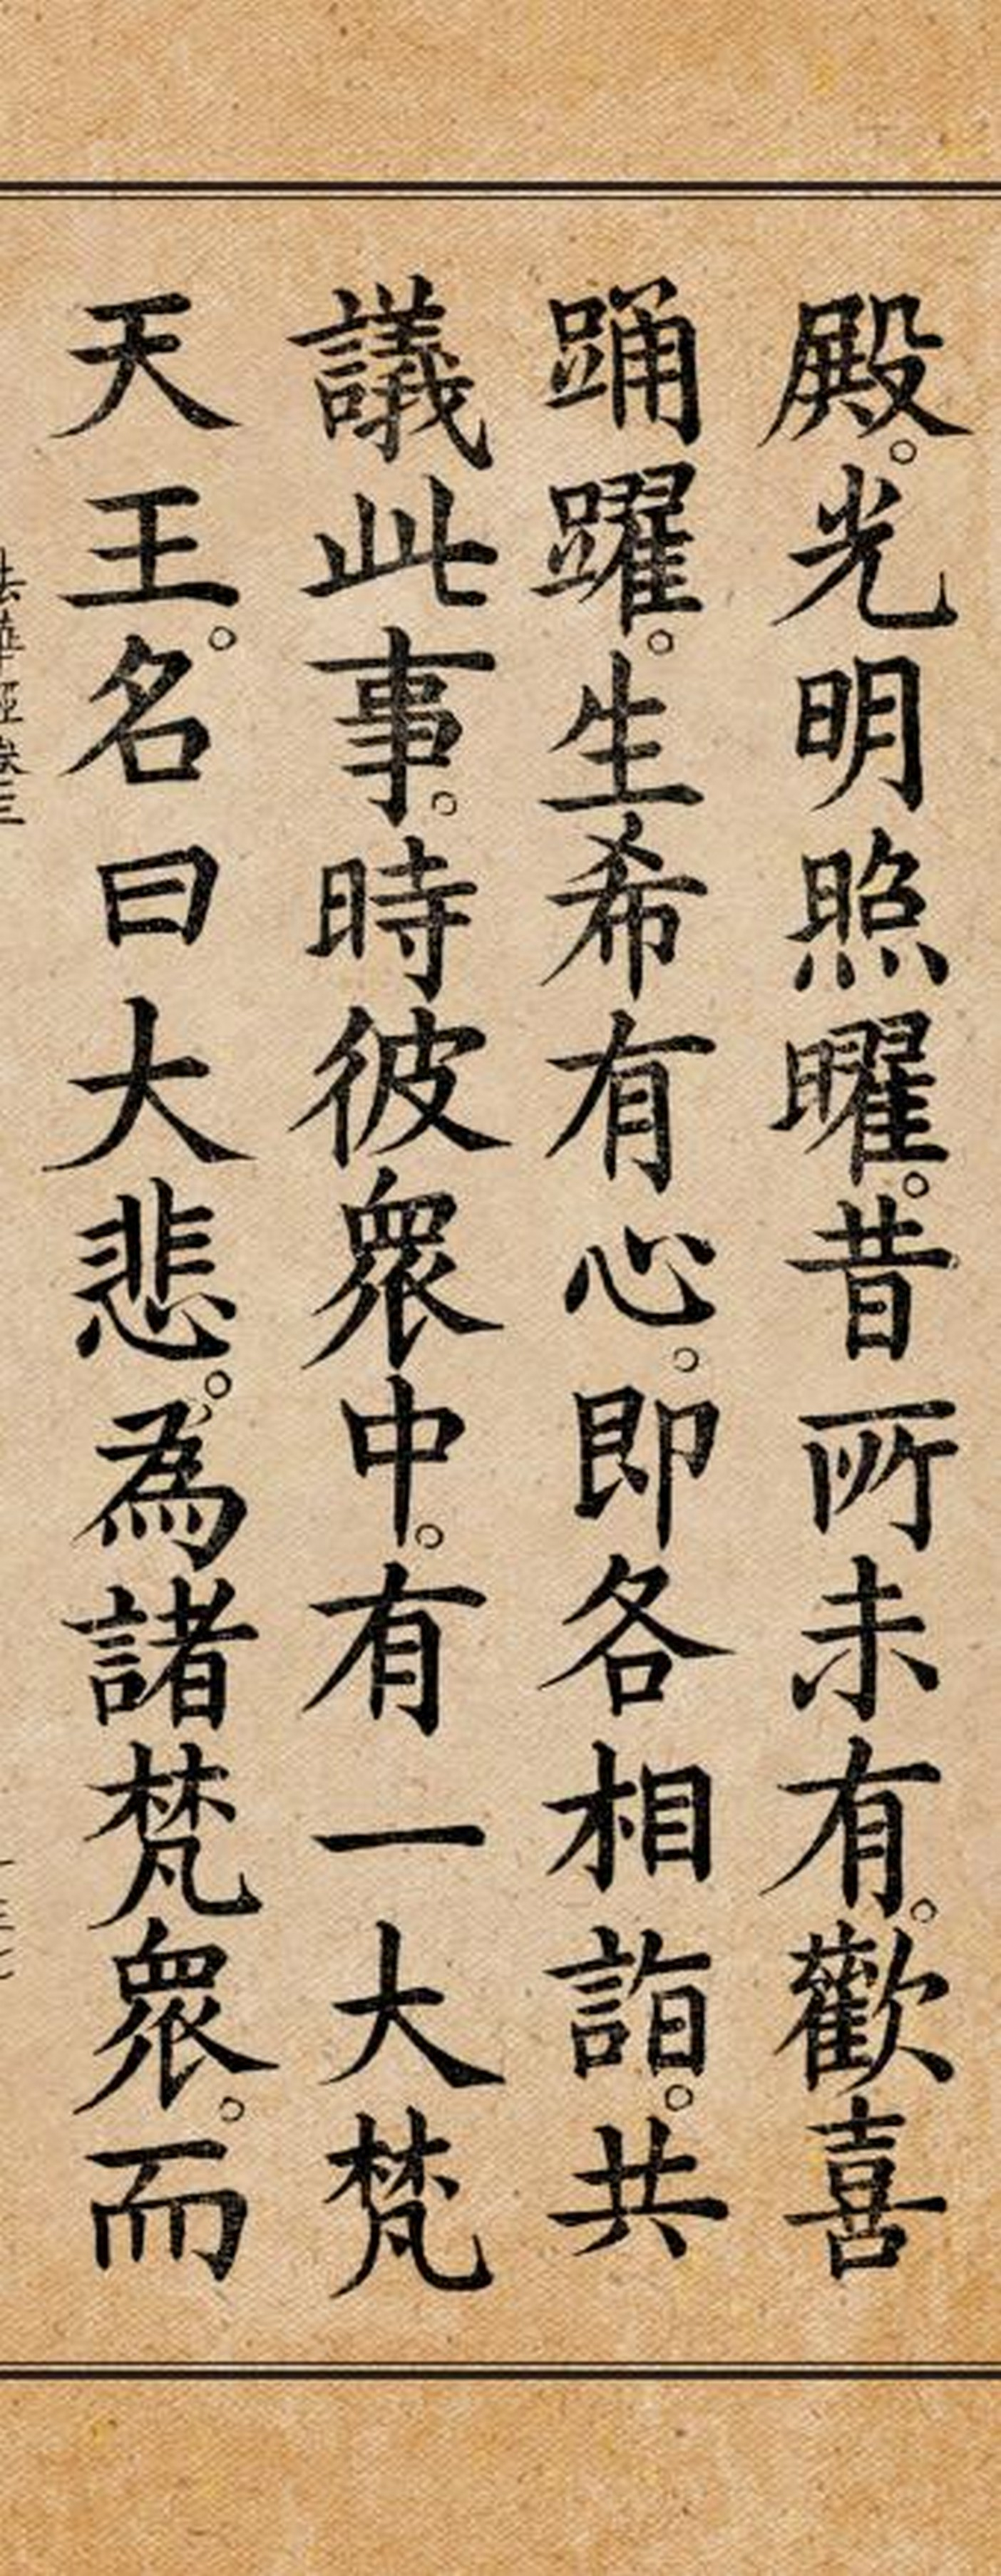 殿。光明照曜。昔所未有。歡喜
踊躍。生希有心。即各相詣。共
議此事。時彼眾中。有一大梵
天王。名曰大悲。為諸梵眾。而
法華經卷三